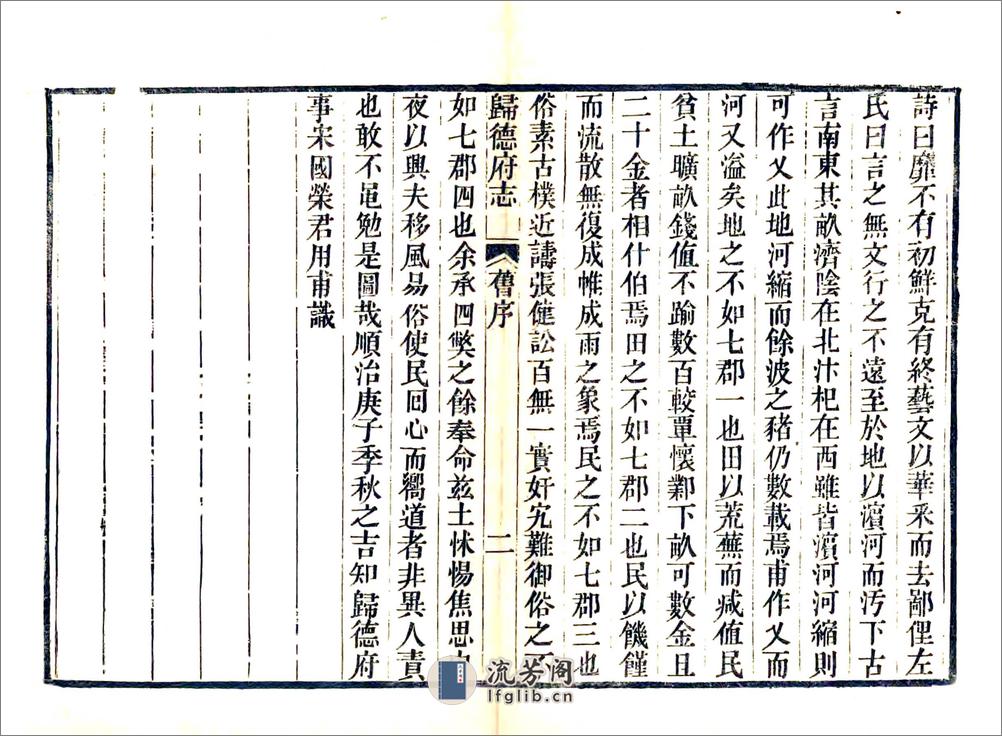 詩曰靡不有初鮮克有終藝文以華采而去鄙俚左
氏曰言之無文行之不遠至於地以濵河而汚下古
言南東其畝濟陰在北汴杞在西雖皆濵河河縮則
可作乂此地河縮而餘波之豬仍數載焉甫作乂而
河又溢矣地之不如七郡一也田以荒蕪而减值民
貧土曠畝錢值不踰數百較覃懷鄴下畝可數金且
二十金者相什伯焉田之不如七郡二也民以饑饉
而流散無復成帷成雨之象焉民之不如七郡三也
俗素古樸近譸張健訟百無一實奸宄難御俗之不
歸德府志 舊序 二
如七郡四也余承四獘之餘奉命兹土怵惕焦思
夜以興夫移風易俗使民回心而嚮道者非異人責
也敢不黽勉是圖哉順治庚子季秋之吉知歸德府
事宋國榮君用甫識
流芳阁
lfglib.cn